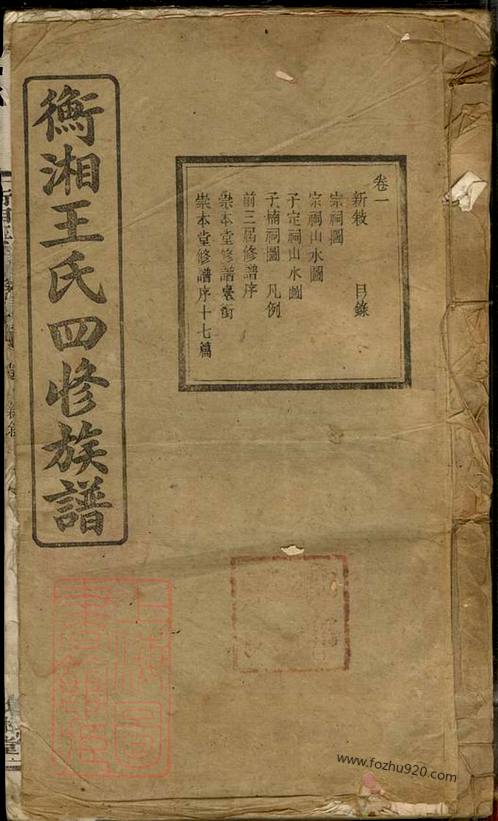 衡湘王氏四修族譜
卷一
新敘 目錄
宗祠圖
宗祠山水圖
子定祠山水圖
子楠祠圖 凡例
前三屆修譜序
崇本堂修譜銜
崇本堂修譜序十七篇
www.fozhu920.com